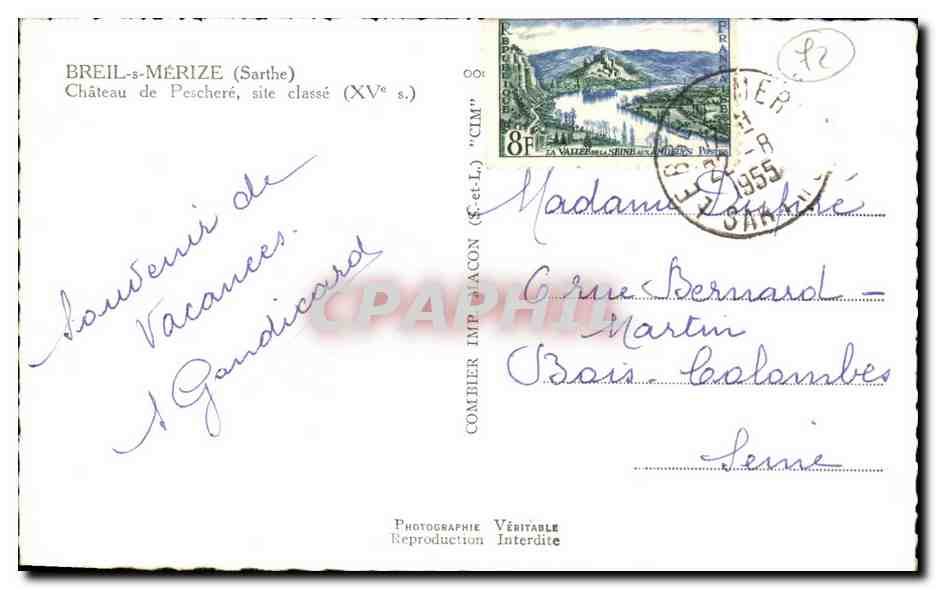 BREIL-s-MÉRIZE (Sarthe)
Château de Pescheré, site classé (XVe s.)
Souvenir de
Vacances.
COMBIER IMP. MACON (S.-et-L.) "CIM"
REPUBLIQUE FRANCAISE
8F
LA VALLÉE DE LA SEINE AUX ANDELYS POSTES
1955
72
Madame
6 rue Bernard -
Martin
Bois-Colombes
Seine
PHOTOGRAPHIE VÉRITABLE
Reproduction Interdite
CPAPHIL